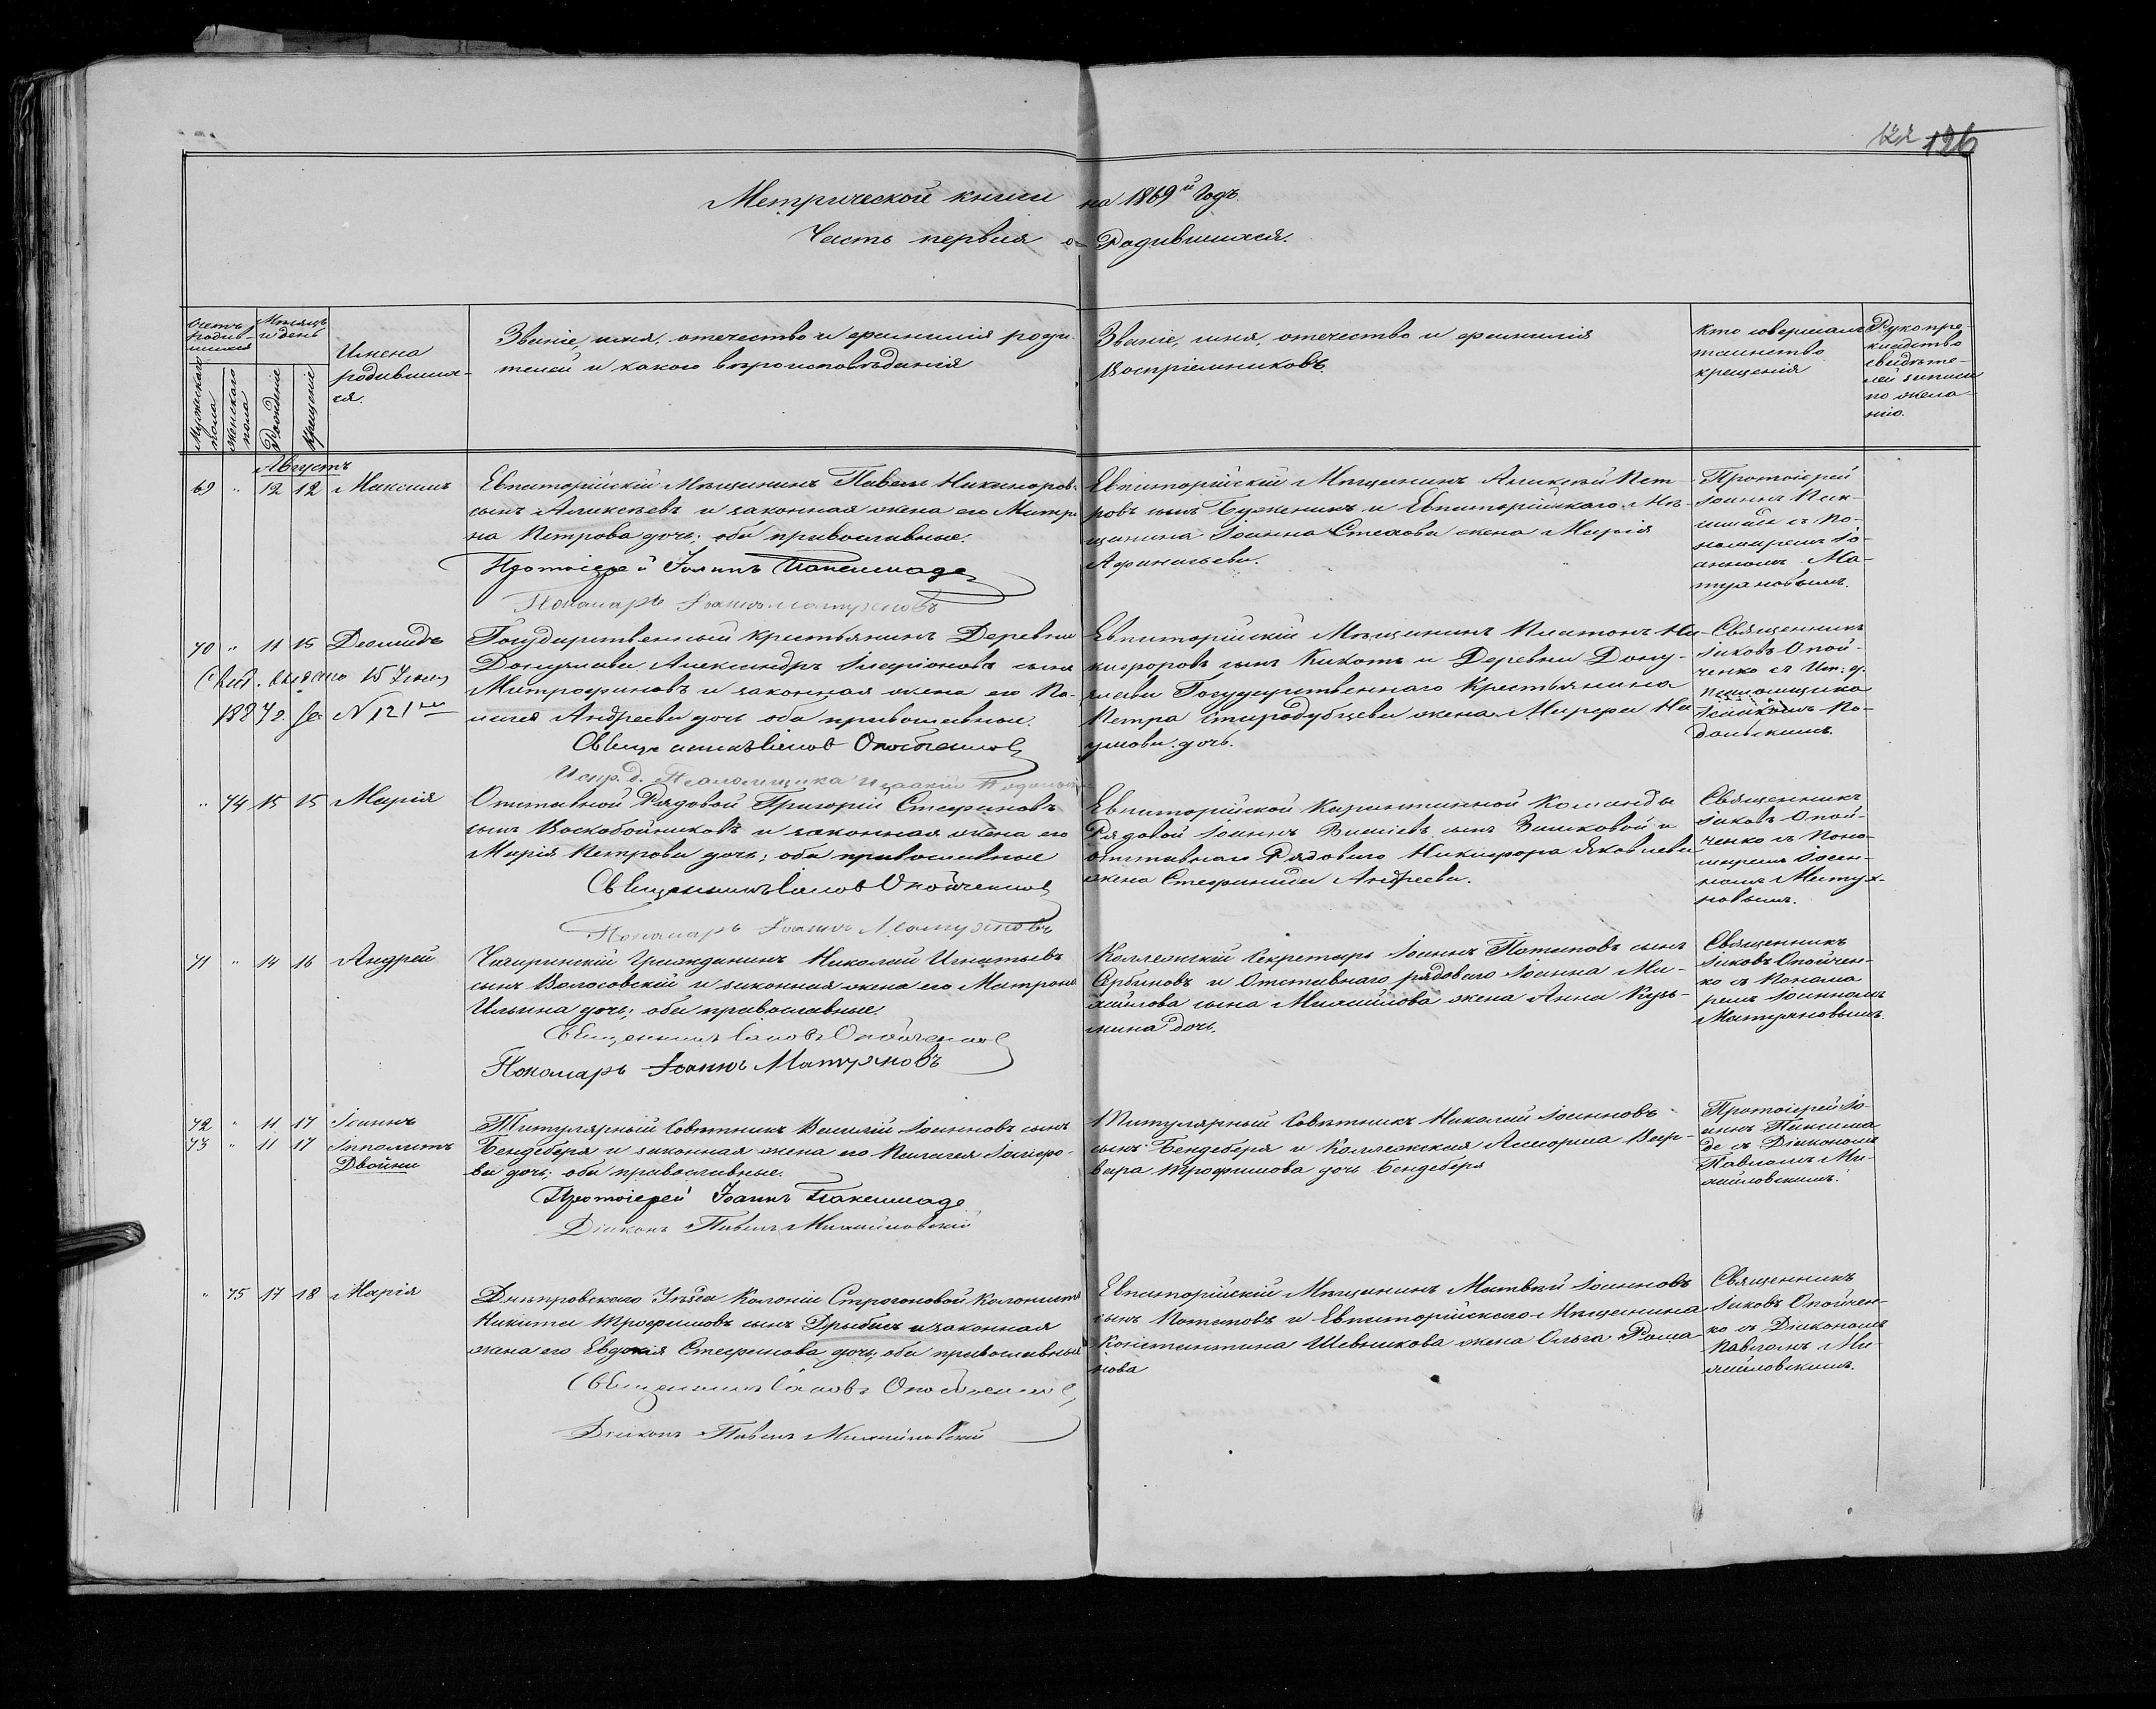 122 126
Метрической книги на 1869й Годъ.
Часть первая о Родившихся.
Счетъ родив-
шихся
Мужескаго пола
Женскаго пола
Мѣсяцъ
и день
Рожденіе
Крещеніе
Имена
родивших-
ся.
Званіе, имя, отечество и фамилія роди-
телей и какого вѣроисповѣданія
Званіе, имя, отечество и фамилія
Воспріемниковъ.
Кто совершалъ
таинство
крещенія
Рукопри-
кладство
свидѣте-
лей записи
по жела-
нію.
Августъ
69 " 12 12 Максимъ
Евпаторійскій Мѣщанинъ Павелъ Никаноровъ
сынъ Алексѣевъ и законная жена его Матро
на Петрова дочь; оба православные.
Протоіерей Іоаннъ Паксимаде
Пономарь Іоаннъ Матуяновъ
Евпаторійскій Мѣщанинъ Алексѣй Пет-
ровъ сынъ и Евпаторійскаго Мѣ-
щанина Іоанна Стехова жена Марія
Афанасьева.
Протоіерей
Іоаннъ Пак-
симаде съ По-
номаремъ Іо-
анномъ Ма-
туяновымъ.
70 " 11 15 Деомидъ
Свид. выдано 15 Іюня
1887 г. за N 121
Государственный Крестьянинъ Деревни
Донузлава Александръ Иларіоновъ сынъ
Митрофановъ и законная жена его Пе-
лагея Андреева дочь оба православные.
Священникъ Іаковъ Опойченко
Испр. д. Псаломщика Исаакій Подольскій
Евпаторійскій Мѣщанинъ Платонъ Ни-
кифоровъ сынъ Кикоть и Деревни Дону-
злава Государственнаго Крестьянина
Петра Стародубцева жена Марфа На
умова дочь.
Священникъ
Іаковъ Опой-
ченко съ Исп: д.
псаломщика
Исаакіемъ По-
дольскимъ.
" 74 15 15 Марія
Отставной Рядовой Григорій Стефановъ
сынъ Воскобойниковъ и законная жена его
Марія Петрова дочь; оба православные
Священникъ Іаковъ Опойченко
Пономарь Іоаннъ Матуяновъ
Евпаторійской Карантинной Команды
Рядовой Іоаннъ сынъ и
отставнаго Рядоваго Никифора Яковлева
жена Стефанида Андреева.
Священникъ
Іаковъ Опой-
ченко съ Поно-
маремъ Іоан-
номъ Матуя-
новымъ.
71 " 14 16 Андрей
Чигиринскій Гражданинъ Николай Игнатьевъ
сынъ Волосовскій и законная жена его Матрона
Ильина дочь; оба православные.
Священникъ Іаковъ Опойченко
Пономарь Іоаннъ Матуяновъ
Коллежскій Секретарь Іоаннъ Потаповъ сынъ
Сербиновъ и Отставнаго рядоваго Іоанна Ми-
хайлова сына Михайлова жена Анна Кузь-
мина дочь.
Священникъ
Іаковъ Опойчен-
ко съ Понома
ремъ Іоанномъ
Матуяновымъ.
72 " 11 17 Іоаннъ
73 " 11 17 Ипполитъ
Двойни
Титулярный Совѣтникъ Василій Іоанновъ сынъ
Бендеберя и законная жена его Пелагея
ва дочь; оба православные.
Протоіерей Іоаннъ Паксимаде
Діаконъ Павелъ Михайловскій
Титулярный Совѣтникъ Николай Іоанновъ
сынъ Бендеберя и Коллежская Ассесорша Вар-
вара Трофимова дочь Бендеберя
Протоіерей Іо-
аннъ Паксима
де съ Діакономъ
Павломъ Ми-
хайловскимъ.
" 75 17 18 Марія
Днѣпровскаго Уѣзда Колоніи Строгоновой Колонистъ
Никита Трофимовъ сынъ и законная
жена его Евдокія Стефанова дочь; оба православные
Священникъ Іаковъ Опойченко
Діаконъ Павелъ Михайловскій
Евпаторійскій Мѣщанинъ Матвѣй Іоанновъ
сынъ Потаповъ и Евпаторійскаго Мѣщанина
Константина Шевчикова жена Ольга Рома-
нова
Священникъ
Іаковъ Опойчен-
ко съ Діакономъ
Павломъ Ми-
хайловскимъ.